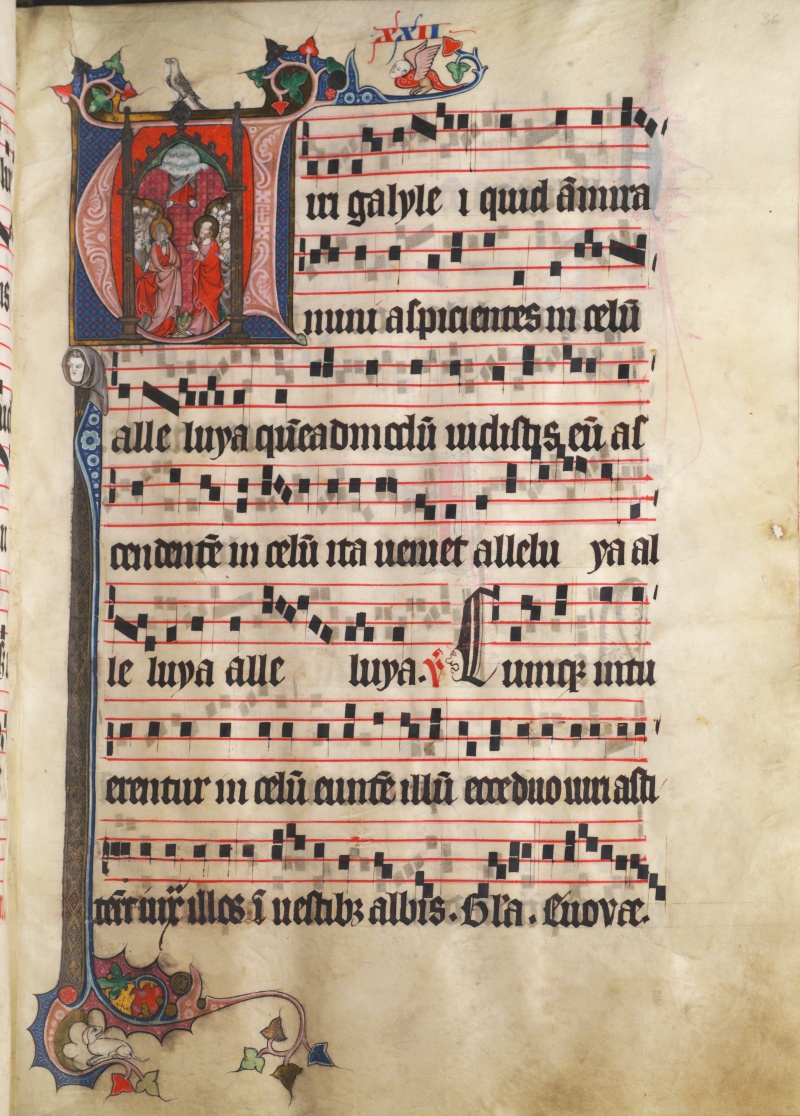 XXII
36
Uiri galyle i quid āmira
mini aspicientes in celū
alle luya quēadm celū uidistis eū as
cendentē in celū ita ueniet allelu ya al
le luya alle luya. V Cumq; intu
erentur in celū euntē illū ecce duo uiri asti
illos ī uestibꝫ albis. Gl'a. Euovæ.